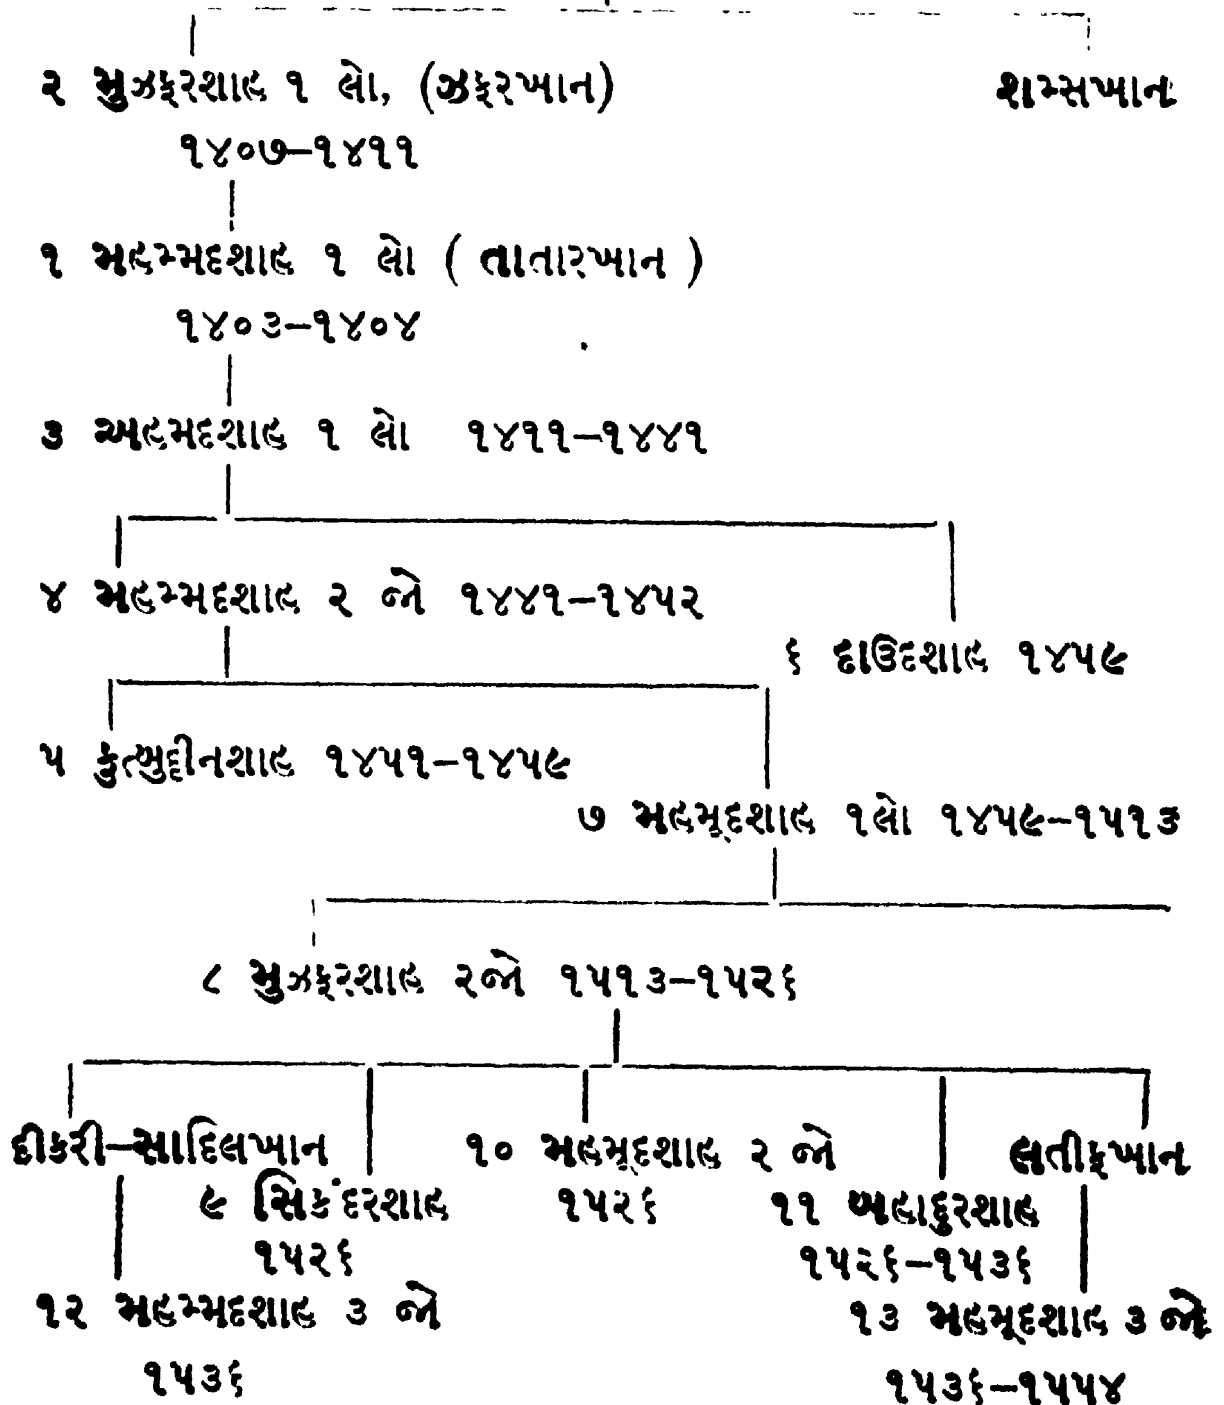 ૨ મુઝફ્ફરશાહ ૧ લો, (ઝફરખાન)
શમ્સખાન
૧૪૦૭–૧૪૧૧
૧ મહમ્મદશાહ ૧ લો ( તાતારખાન )
૧૪૦૩–૧૪૦૪
૩ અહમદશાહ ૧ લો ૧૪૧૧–૧૪૪૧
૪ મહમ્મદશાહ ૨ જો ૧૪૪૧–૧૪૫૨
૬ દાઉદશાહ ૧૪૫૯
૫ કુત્બુદ્દીનશાહ ૧૪૫૧–૧૪૫૯
૭ મહમૂદશાહ ૧લો ૧૪૫૯–૧૫૧૩
૮ મુઝફ્ફરશાહ ૨જો ૧૫૧૩–૧૫૨૬
દીકરી–સાદિલખાન
૧૦ મહમૂદશાહ ૨ જો
લતીફખાન
૯ સિકંદરશાહ
૧૫૨૬
૧૧ બહાદુરશાહ
૧૫૨૬
૧૫૨૬–૧૫૩૬
૧૨ મહમ્મદશાહ ૩ જો
૧૩ મહમૂદશાહ ૩ જો
૧૫૩૬
૧૫૩૬–૧૫૫૪